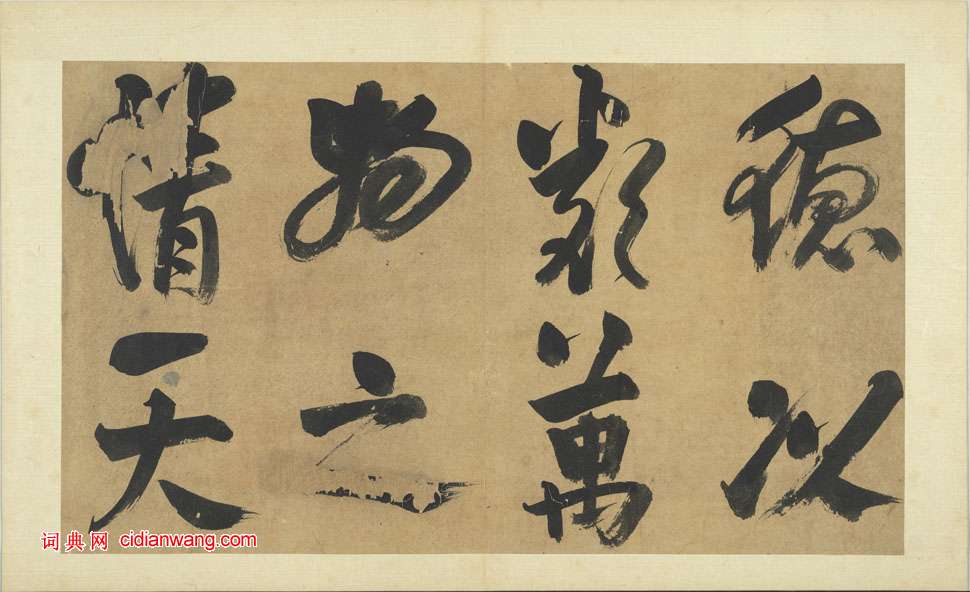 德以
類萬
物之
情天
词典网 cidianwang.com